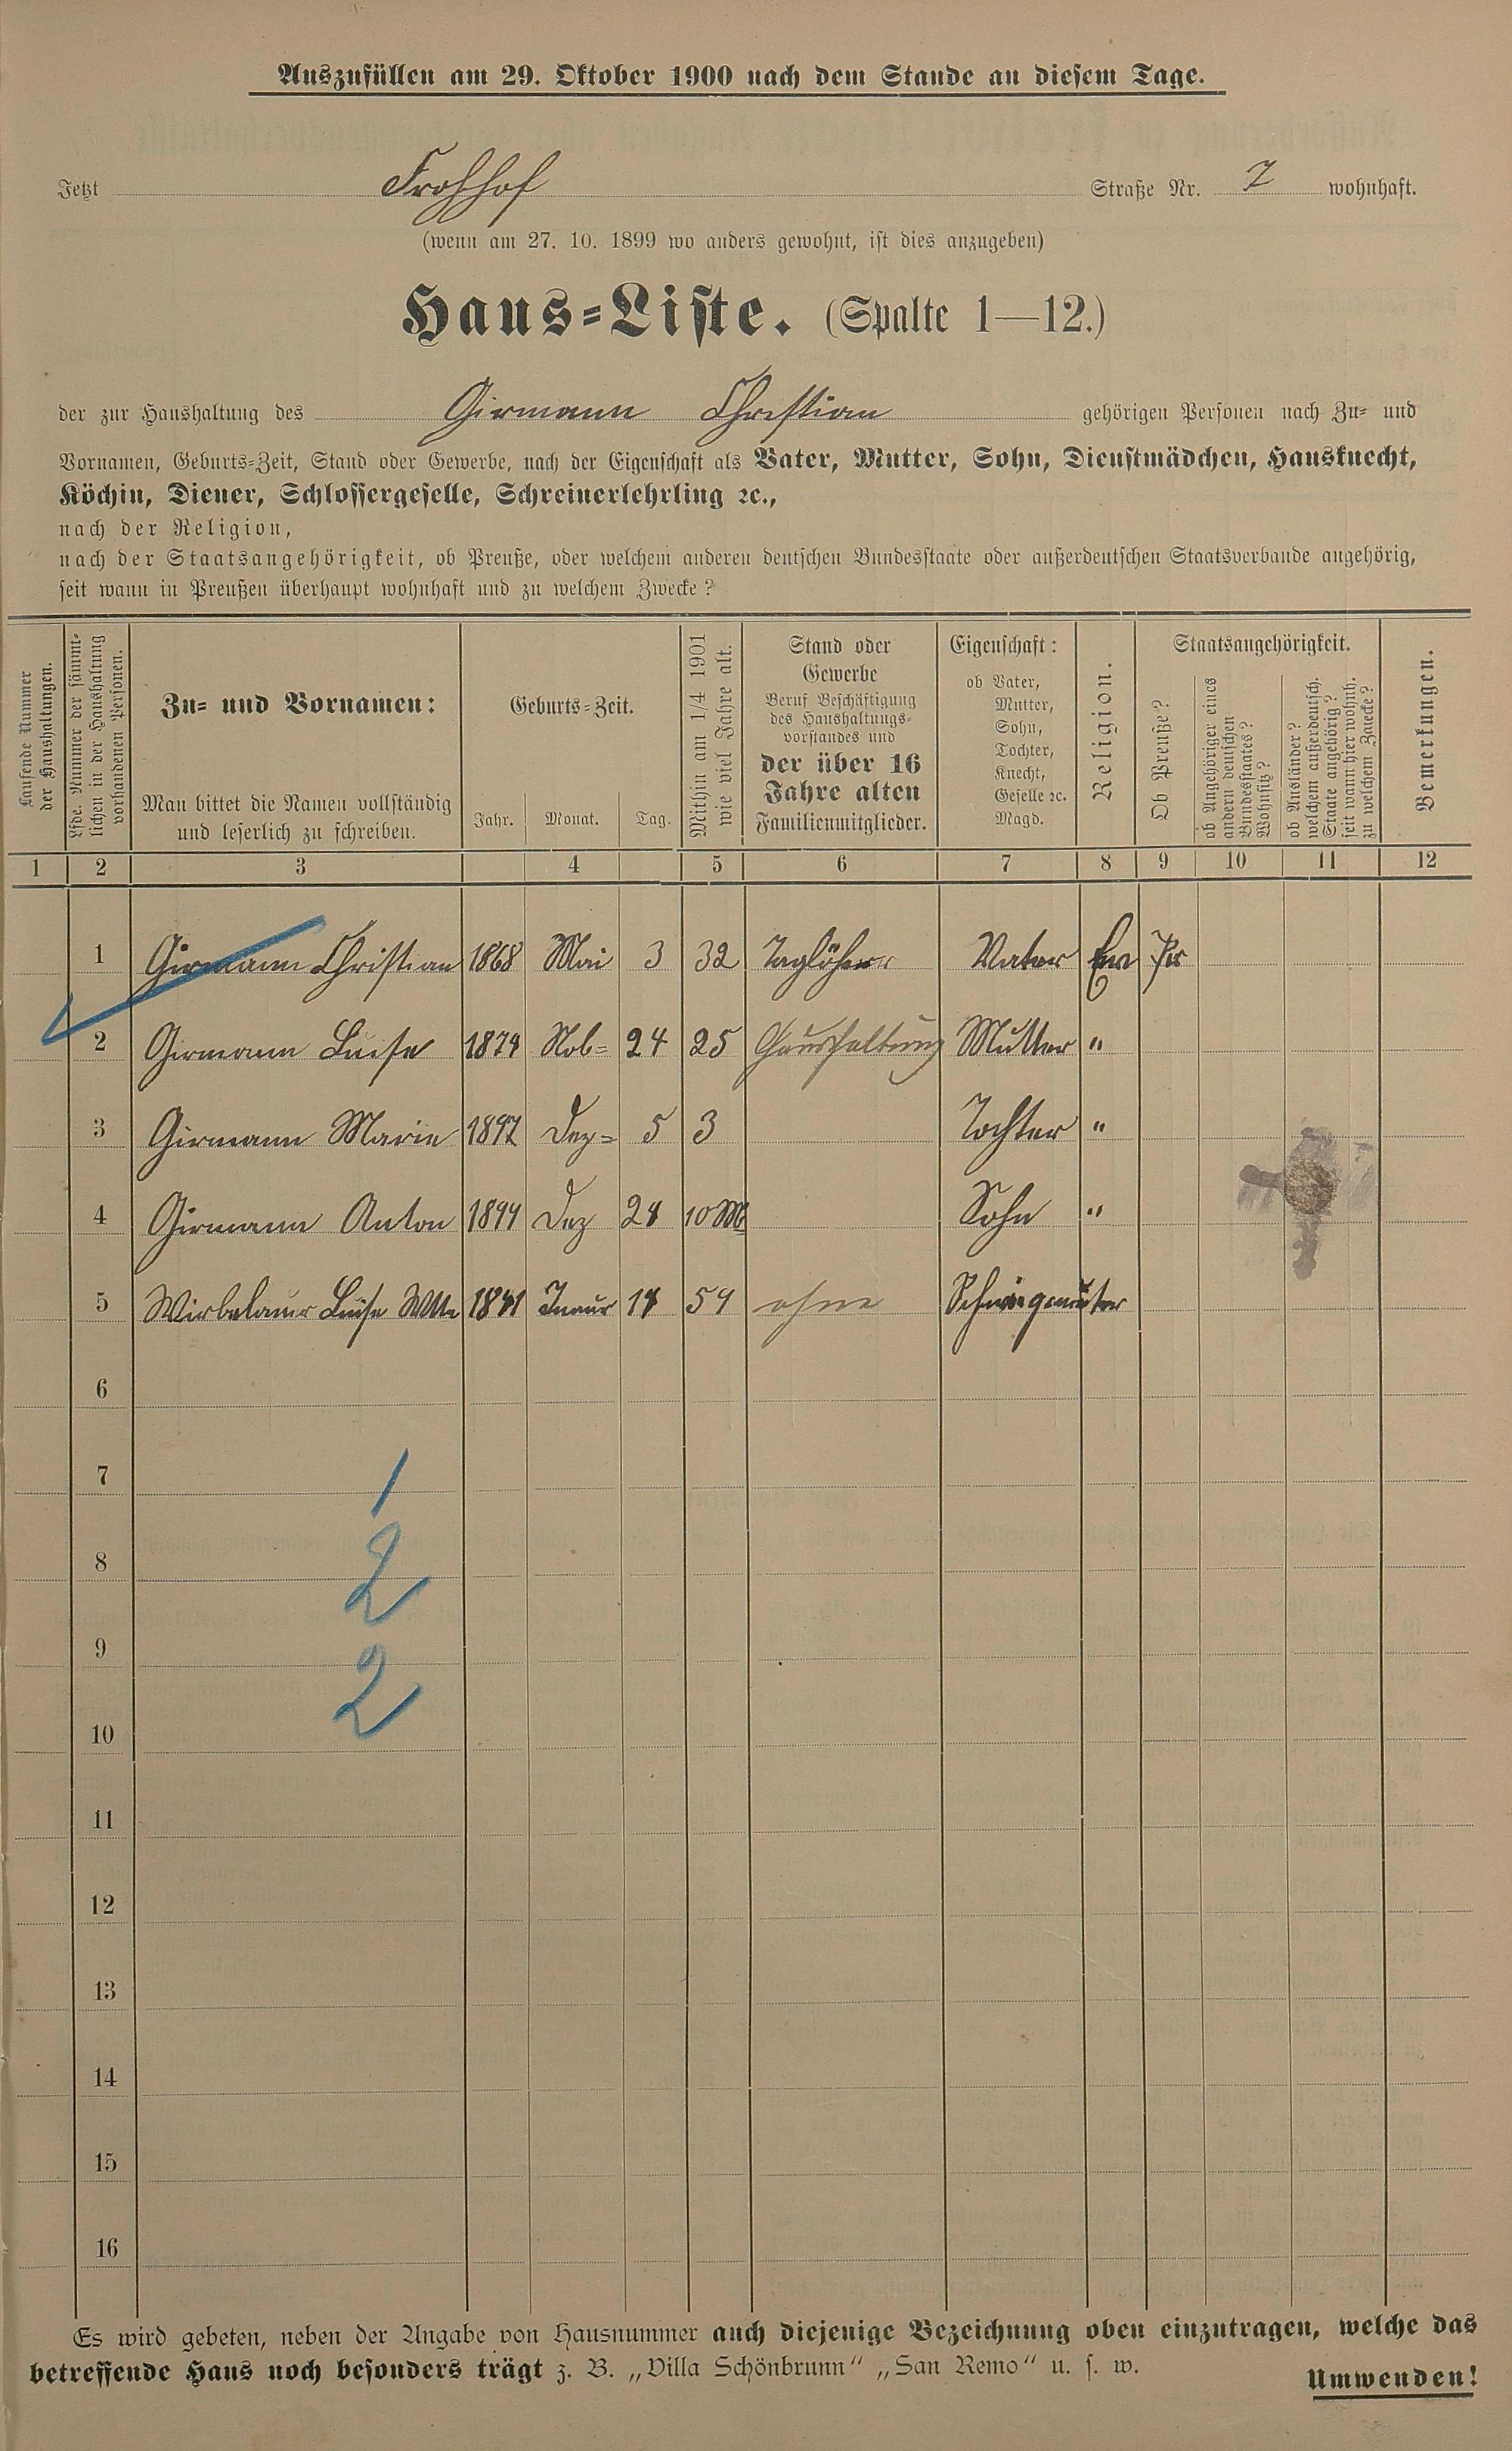 Auszufüllen am 29. Oktober 1900 nach dem Stande an diesem Tage.
Jetzt Frohhof Straße Nr. 7 wohnhaft.
(wenn am 27. 10. 1899 wo anders gewohnt, ist dies anzugeben)
Haus-Liste. (Spalte 1—12.)
der zur Haushaltung des Girmann Christian gehörigen Personen nach Zu- und
Vornamen, Geburts-Zeit, Stand oder Gewerbe, nach der Eigenschaft als Vater, Mutter, Sohn, Dienstmädchen, Hausknecht,
Köchin, Diener, Schlossergeselle, Schreinerlehrling ꝛc.,
nach der Religion,
nach der Staatsangehörigkeit, ob Preuße, oder welchem anderen deutschen Bundesstaate oder außerdeutschen Staatsverbande angehörig,
seit wann in Preußen überhaupt wohnhaft und zu welchem Zwecke?
Laufende Nummer
der Haushaltungen.
Lfde. Nummer der sämmt-
lichen in der Haushaltung
vorhandenen Personen.
Zu- und Vornamen:
Man bittet die Namen vollständig
und leserlich zu schreiben.
Geburts-Zeit.
Jahr. Monat. Tag.
Mithin am 1/4 1901
wie viel Jahre alt.
Stand oder
Gewerbe
Beruf Beschäftigung
des Haushaltungs-
vorstandes und
der über 16
Jahre alten
Familienmitglieder.
Eigenschaft:
ob Vater,
Mutter,
Sohn,
Tochter,
Knecht,
Geselle ꝛc.
Magd.
Religion.
Staatsangehörigkeit.
Ob Preuße?
ob Angehöriger eines
andern deutschen
Bundesstaates?
Wohnsitz?
ob Ausländer?
welchem außerdeutsch.
Staate angehörig?
seit wann hier wohnh.
zu welchem Zwecke?
Bemerkungen.
1 2 3 4 5 6 7 8 9 10 11 12
1 Girmann Christian 1868 Mai 3 32 Taglöhner Vater Ev Pr
2 Girmann Luise 1874 Nob= 24 25 Haushaltung Mutter "
3 Girmann Marie 1897 Dez= 5 3 Tochter "
4 Girmann Anton 1899 Dez 28 10 M Sohn "
5 Wirbelauer Luise Wtte 1841 Inaur 18 59 ohne Schwigemutter
6
7 1
8 2
9
10 2
11
12
13
14
15
16
Es wird gebeten, neben der Angabe von Hausnummer auch diejenige Bezeichnung oben einzutragen, welche das
betreffende Haus noch besonders trägt z. B. „Villa Schönbrunn“ „San Remo“ u. s. w.
Umwenden!